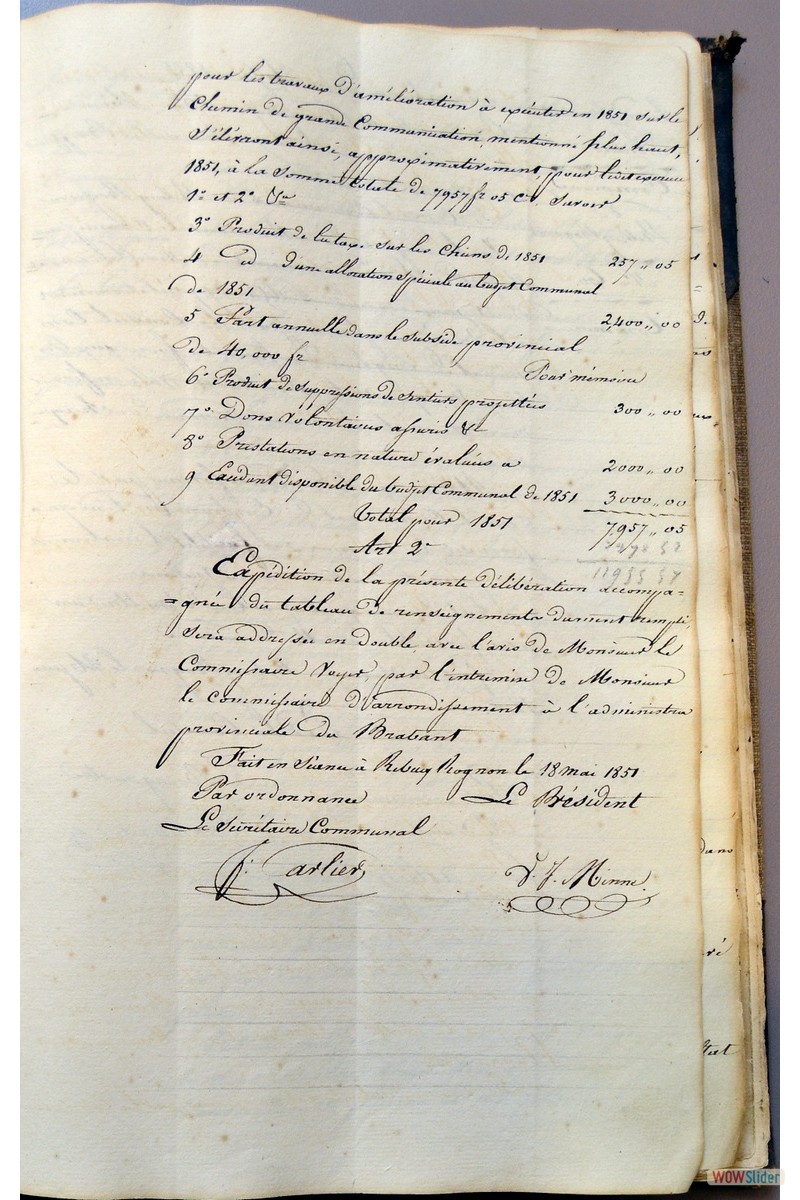 pour les travaux d'amélioration à exécuter en 1851 sur le
chemin de grande Communication, mentionné plus haut,
s'élèvront ainsi, approximativement, pour ledit exercice
1851, à la Somme totale de 7957 fr 05 Cs. Savoir
1º et 2º &a
3º Produit de la tax. sur les Chiens de 1851 257 ,, 05
4 id d'une allocation spéciale au budjet Communal
de 1851 2,400 ,, 00
5 Part annuelle dans le subside provincial
de 40,000 fr Pour mémoire
6º Produit de Suppressions de Sentiers projettées 300 ,, 00
7º Dons volontaires assurés &a
8º Prestations en nature évalués a 2000 ,, 00
9 Excédant disponible du budjet Communal de 1851 3000 ,, 00
Total pour 1851 7,957 ,, 05
Art 2e
11955 57
Expédition de la présente délibération accompa-
=gnée du tableau de renseignements dument rempli,
sera addressée en double, avec l'avis de Monsieur le
Commissaire Voyer, par l'intremise de Monsieur
le commissaire d'arrondissement à l'administra
provinciale du Brabant
Fait en Séance à Rebecq Rognon le 18 mai 1851
Par ordonnance Le Président
Le Secrétaire Communal
J. Carlier D. J. Minne
dans
ré
WOWSlider